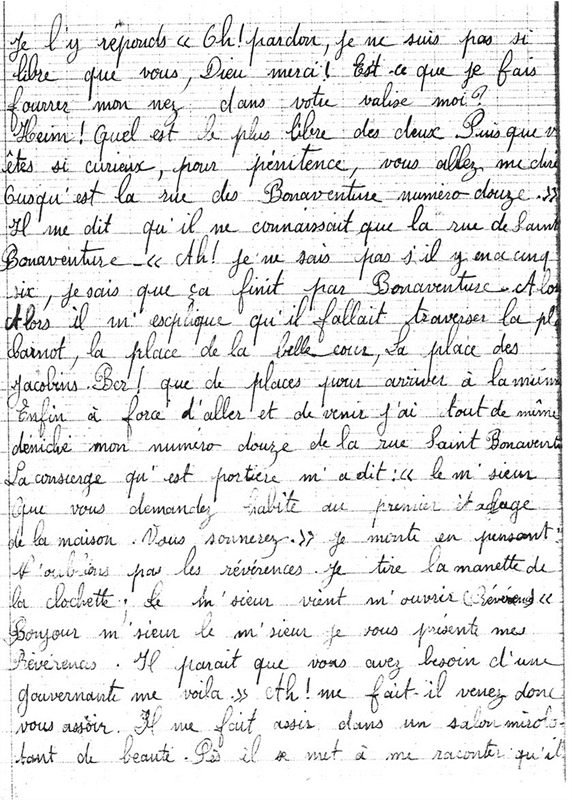 Je l'y réponds « Oh! pardon, je ne suis pas si
libre que vous, Dieu merci! Est-ce que je fais
fourrer mon nez dans votre valise moi?
Heim! Quel est le plus libre des deux Puis que v
êtes si curieux, pour pénitence, vous allez me dire
Ousqu'est la rue des Bonaventure numéro douze. »
Il me dit qu'il ne connaissait que la rue de Saint
Bonaventure - « Ah! je ne sais pas s'il y en a cinq
six, je sais que ça finit par Bonaventure. Alor
Alors il m'esplique qu'il fallait traverser la pl
Carnot, la place de la belle cour, La place des
Jacobins. Ber! que de places pour arriver à la mienn
Enfin à force d'aller et de venir j'ai tout de même
déniché mon numéro douze de la rue Saint Bonavent
La consierge qu'est portière m'a dit: « le m'sieur
Que vous demandez habite au premier étadage
de la maison. Vous sonnerez. » Je monte en pensant:
N'oublions pas les révérences. Je tire la manette de
la clochette; Le m'sieur vient m'ouvrir (Révérences) «
Bonjour m'sieur le m'sieur je vous présente mes
Révérences. Il parait que vous avez besoin d'une
gouvernante me voila. » Ah! me fait-il venez donc
vous assoir. Il me fait assir dans un salon mirolo-
tant de beauté. Pis il se met à me raconter qu'il